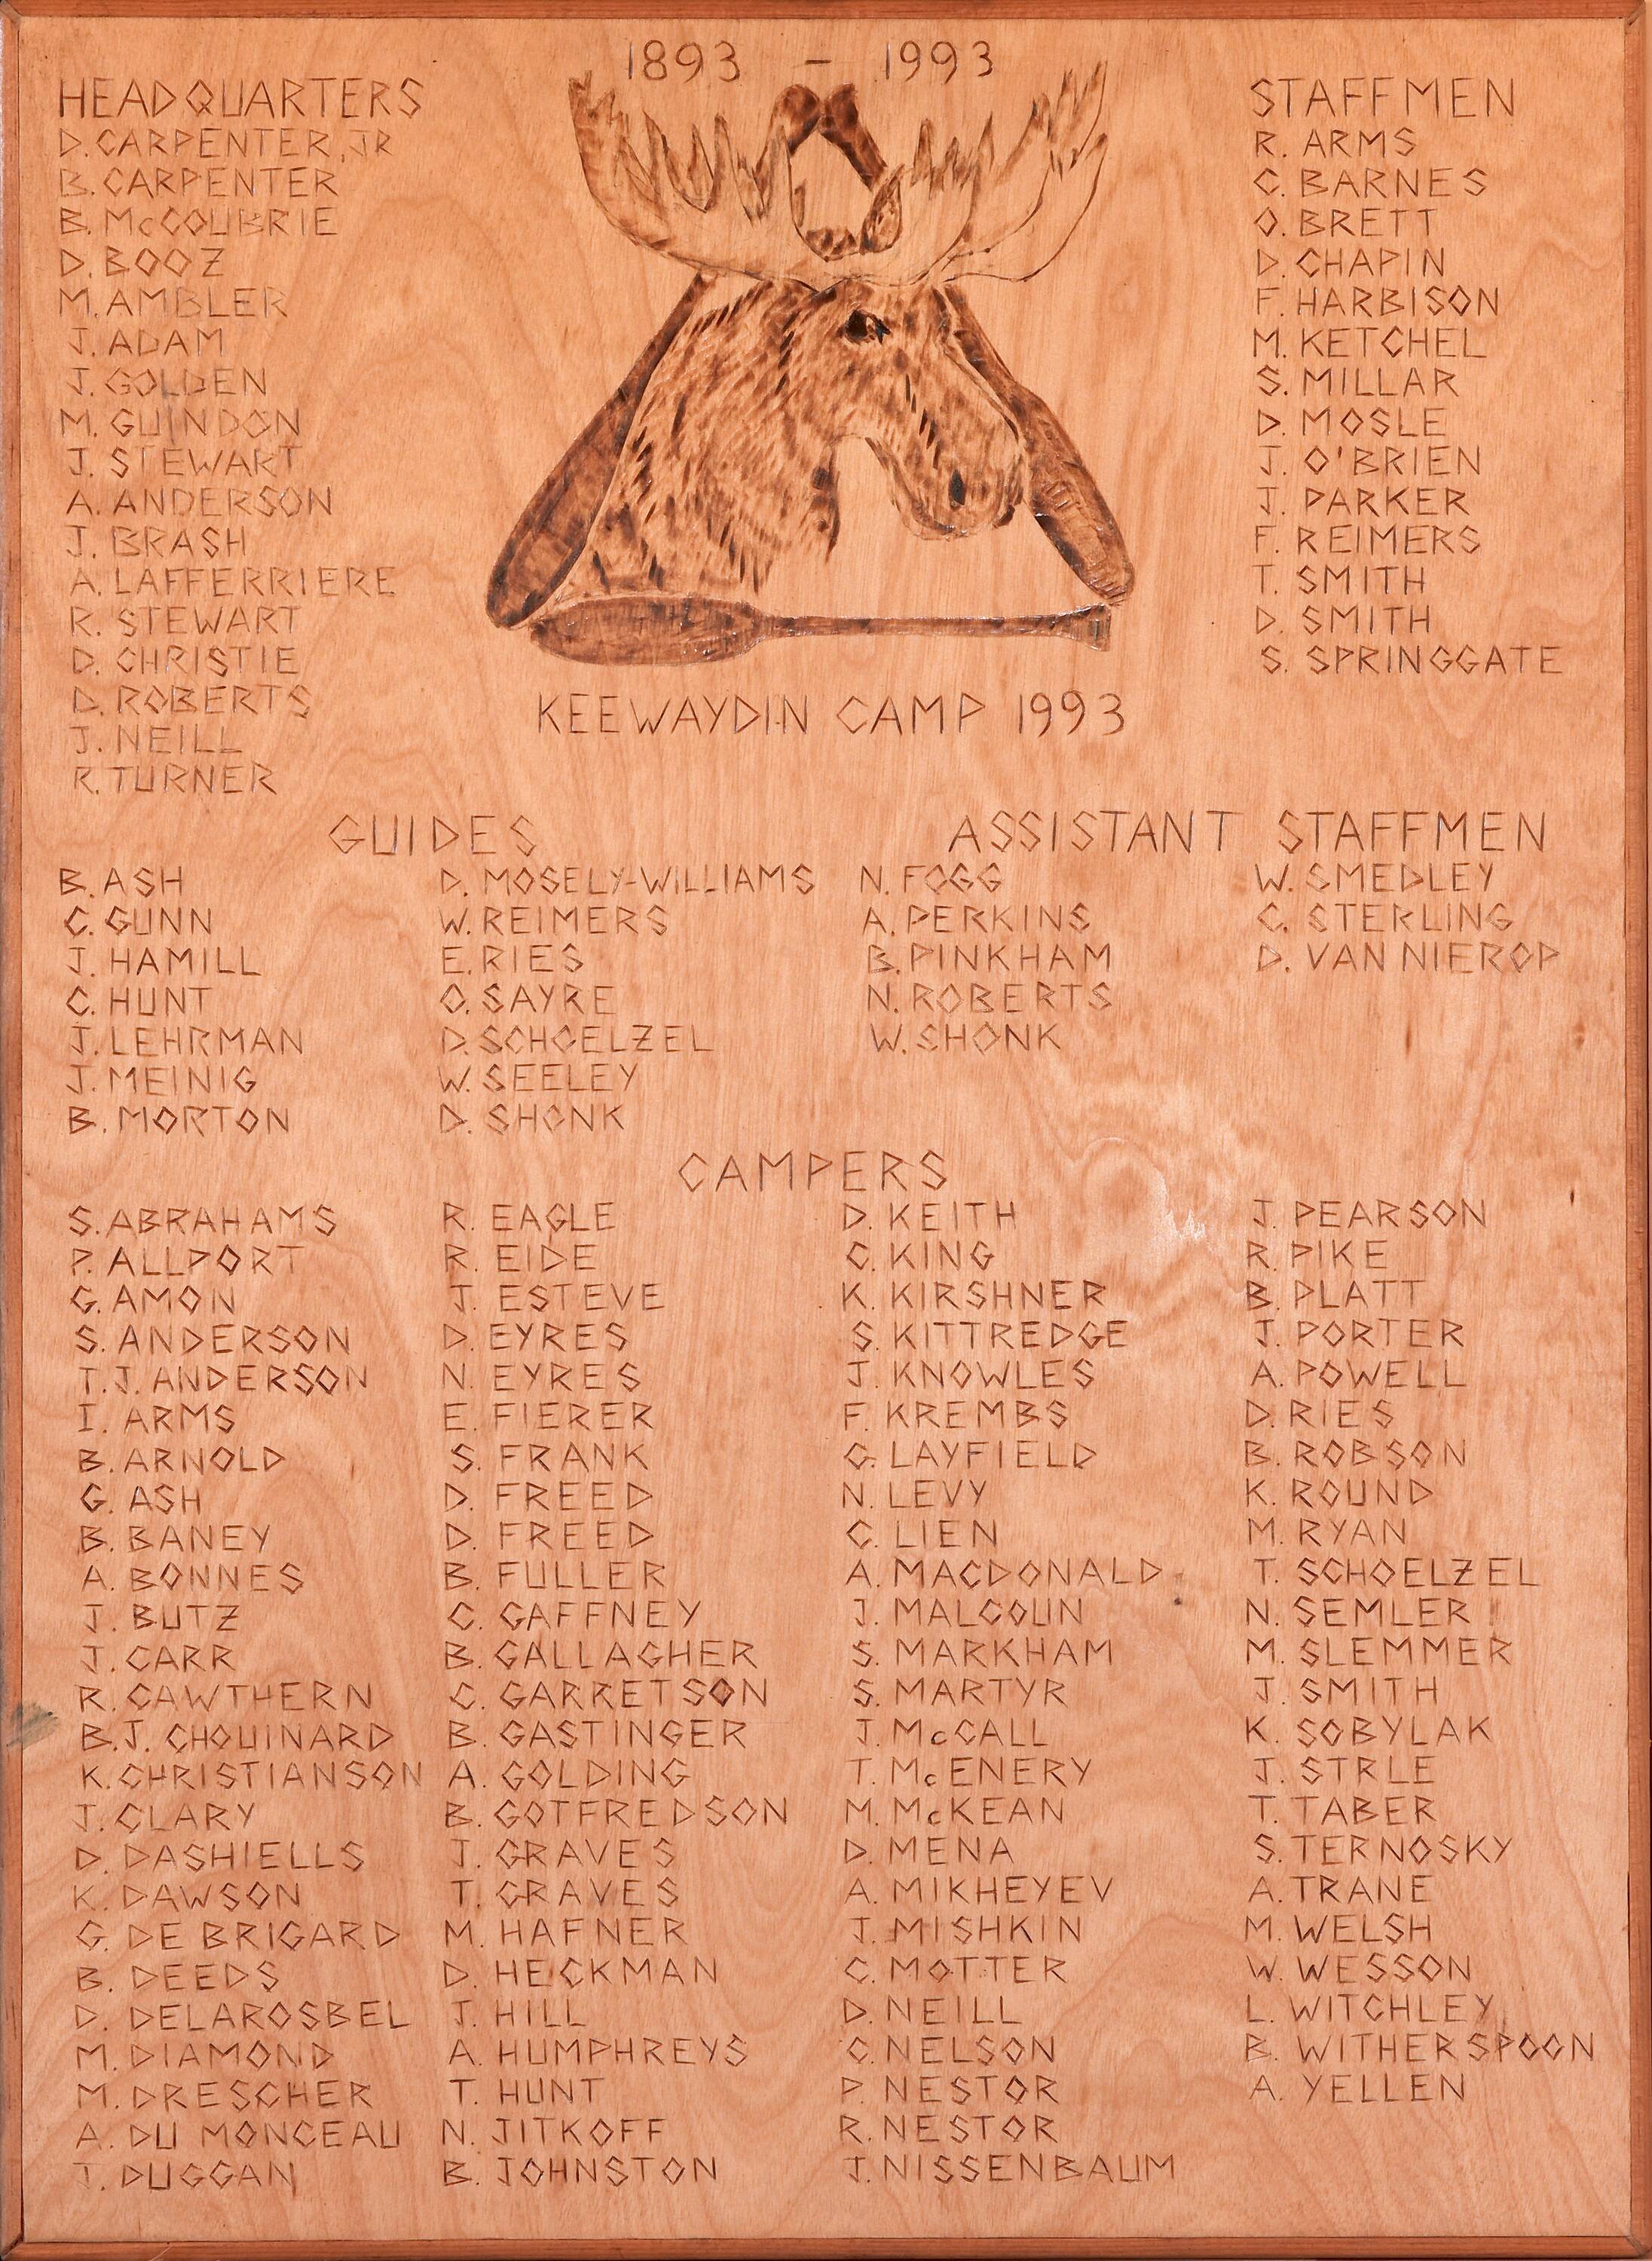 1893 - 1993
HEADQUARTERS
D. CARPENTER, JR
B. CARPENTER
B. McCOUBRIE
D. BOOZ
M. AMBLER
J. ADAM
J. GOLDEN
M. GUINDON
J. STEWART
A. ANDERSON
J. BRASH
A. LAFFERRIERE
R. STEWART
D. CHRISTIE
D. ROBERTS
J. NEILL
R. TURNER
STAFFMEN
R. ARMS
C. BARNES
O. BRETT
D. CHAPIN
F. HARBISON
M. KETCHEL
S. MILLAR
D. MOSLE
J. O'BRIEN
J. PARKER
F. REIMERS
T. SMITH
D. SMITH
S. SPRINGGATE
KEEWAYDIN CAMP 1993
GUIDES
B. ASH
C. GUNN
J. HAMILL
C. HUNT
J. LEHRMAN
J. MEINIG
B. MORTON
D. MOSELY-WILLIAMS
W. REIMERS
E. RIES
O. SAYRE
D. SCHOELZEL
W. SEELEY
D. SHONK
ASSISTANT STAFFMEN
N. FOGG
A. PERKINS
B. PINKHAM
N. ROBERTS
W. SHONK
W. SMEDLEY
C. STERLING
D. VAN NIEROP
CAMPERS
S. ABRAHAMS
P. ALLPORT
G. AMON
S. ANDERSON
T.J. ANDERSON
I. ARMS
B. ARNOLD
G. ASH
B. BANEY
A. BONNES
J. BUTZ
J. CARR
R. CAWTHERN
B.J. CHOUINARD
K. CHRISTIANSON
J. CLARY
D. DASHIELLS
K. DAWSON
G. DE BRIGARD
B. DEEDS
D. DELAROSBEL
M. DIAMOND
M. DRESCHER
A. DU MONCEAU
J. DUGGAN
R. EAGLE
R. EIDE
J. ESTEVE
D. EYRES
N. EYRES
E. FIERER
S. FRANK
D. FREED
D. FREED
B. FULLER
C. GAFFNEY
B. GALLAGHER
C. GARRETSON
B. GASTINGER
A. GOLDING
B. GOTFREDSON
J. GRAVES
T. GRAVES
M. HAFNER
D. HECKMAN
J. HILL
A. HUMPHREYS
T. HUNT
N. JITKOFF
B. JOHNSTON
D. KEITH
C. KING
K. KIRSHNER
S. KITTREDGE
J. KNOWLES
F. KREMBS
G. LAYFIELD
N. LEVY
C. LIEN
A. MACDONALD
J. MALCOUN
S. MARKHAM
S. MARTYR
J. McCALL
T. McENERY
M. McKEAN
D. MENA
A. MIKHEYEV
J. MISHKIN
C. MOTTER
D. NEILL
C. NELSON
P. NESTOR
R. NESTOR
J. NISSENBAUM
J. PEARSON
R. PIKE
B. PLATT
J. PORTER
A. POWELL
D. RIES
B. ROBSON
K. ROUND
M. RYAN
T. SCHOELZEL
N. SEMLER
M. SLEMMER
J. SMITH
K. SOBYLAK
J. STRLE
T. TABER
S. TERNOSKY
A. TRANE
M. WELSH
W. WESSON
L. WITCHLEY
B. WITHERSPOON
A. YELLEN